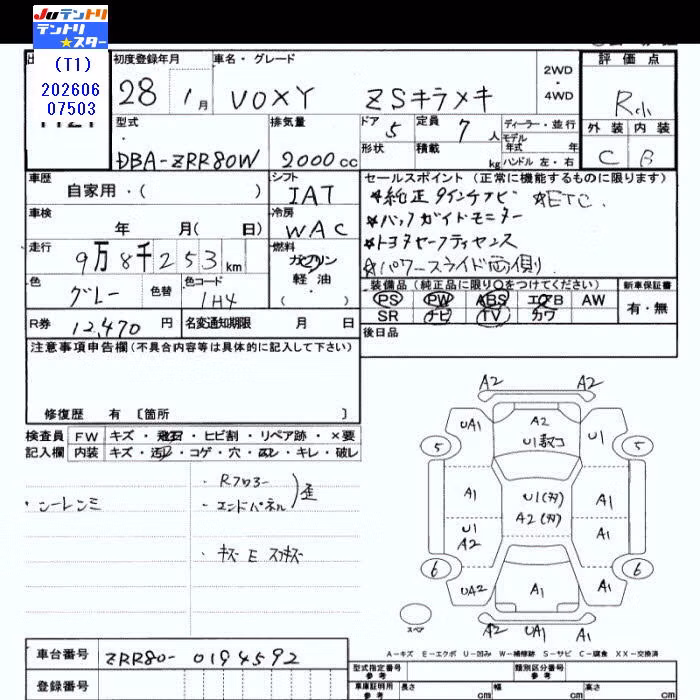 JUテントリ
テントリ★スター
(T1)
202606
07503
初度登録年月
28 1月
車名・グレード
VOXY ZSキラメキ
2WD・4WD
評価点
R小
外装 内装
C B
型式
DBA-ZRR80W
排気量
2000cc
ドア 5
定員 7人
形状
積載 kg
ディーラー・並行
モデル年式 年式
ハンドル 左・右
車歴
自家用・( )
シフト
IAT
車検
年 月( 日)
冷房
WAC
走行
9万8千253km
燃料
ガソリン
軽油
・( )
色
グレー
色替
色コード
1H4
R券 12,470円
名変通知期限 月 日
セールスポイント(正常に機能するものに限ります)
*純正9インチナビ *ETC.
*バックガイドモニター
*トヨタセーフティセンス
*パワースライド両側
装備品(純正品に限り○をつけてください)
PS PW ABS エアB AW
SR ナビ TV カワ
新車保証書
有・無
後日品
注意事項申告欄(不具合内容等は具体的に記入して下さい)
修復歴 有 〔箇所 〕
検査員記入欄
FW キズ・飛石・ヒビ割・リペア跡・×要
内装 キズ・汚レ・コゲ・穴・ヌレ・キレ・破レ
・シーレンミ
・Rフロアー
・エンドパネル)歪
・キズ E スリキズ
A2 A2
UA1 A2 U1
U1
5 5
A1 U1(刃) A1
A2(刃)
U1
A2 A1
6 6
UA2 A1 A1
A2 UA1 A1
スペア
A-キズ E-エクボ U-凹み W-補修跡 S-サビ C-腐食 XX-交換済
車台番号 ZRR80-0194592
登録番号
型式指定番号 参考
類別区分番号 参考
車庫証明用 参考 長さ cm 幅 cm 高さ cm